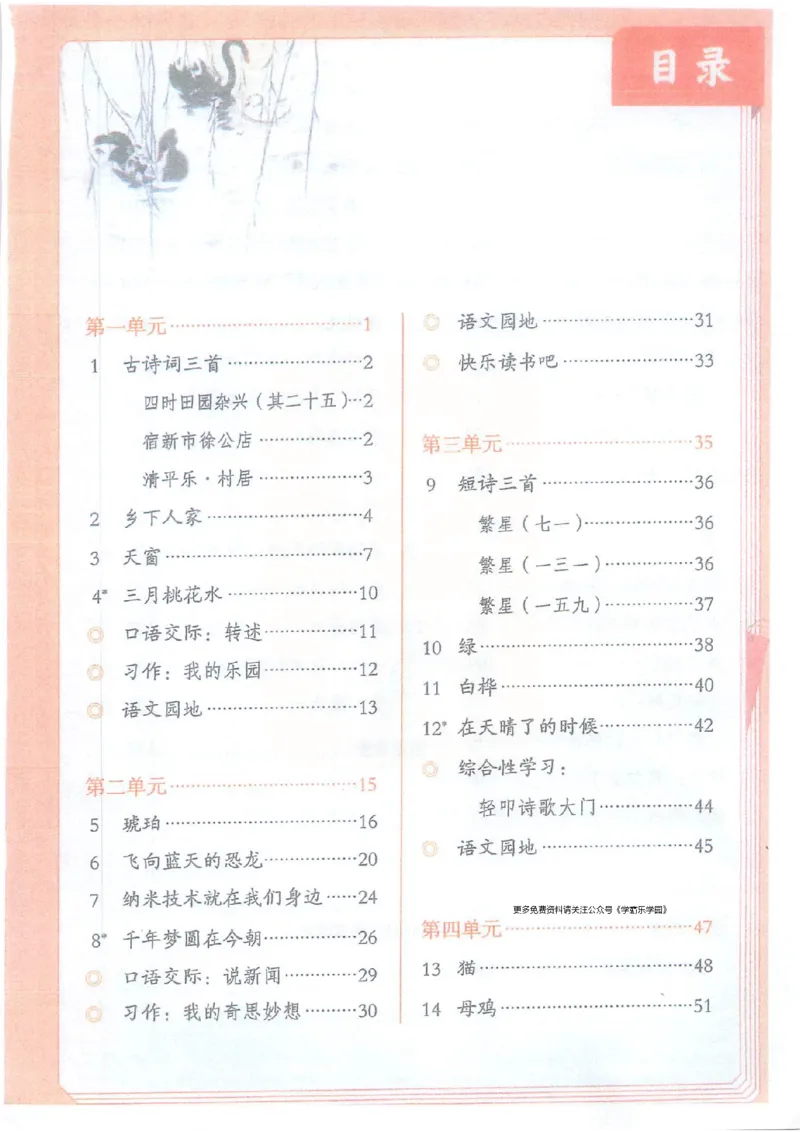 目录
第一单元……1
1 古诗词三首……2
四时田园杂兴（其二十五）…2
宿新市徐公店……2
清平乐·村居……3
2 乡下人家……4
3 天窗……7
4* 三月桃花水……10
口语交际：转述……11
习作：我的乐园……12
语文园地……13
第二单元……15
5 琥珀……16
6 飞向蓝天的恐龙……20
7 纳米技术就在我们身边……24
8* 千年梦圆在今朝……26
口语交际：说新闻……29
习作：我的奇思妙想……30
语文园地……31
快乐读书吧……33
第三单元……35
9 短诗三首……36
繁星（七一）……36
繁星（一三一）……36
繁星（一五九）……37
10 绿……38
11 白桦……40
12* 在天晴了的时候……42
综合性学习：
轻叩诗歌大门……44
语文园地……45
更多免费资料请关注公众号《学霸乐学园》
第四单元……47
13 猫……48
14 母鸡……51